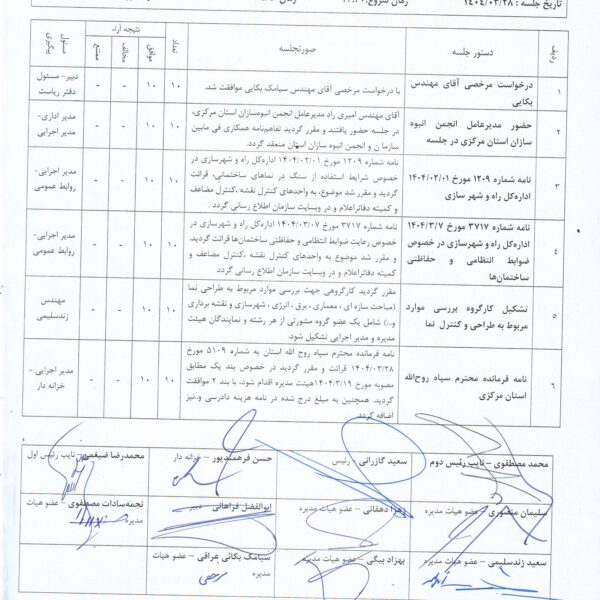 تاریخ جلسه : ۱۴۰۴/۰۳/۲۸
ردیف
دستور جلسه
صورتجلسه
تعداد
نتیجه آراء
موافق
مخالف
ممتنع
مسئول پیگیری
۱
درخواست مرخصی آقای مهندس
بکایی
با درخواست مرخصی آقای مهندس سیامک بکایی موافقت شد.
۱۰
۱۰
-
-
دبیر- مسئول
دفتر ریاست
۲
حضور مدیرعامل انجمن انبوه
سازان استان مرکزی در جلسه
آقای مهندس امیری راد مدیرعامل انجمن انبوه‌سازان استان مرکزی،
در جلسه حضور یافتند و مقرر گردید تفاهم‌نامه همکاری فی مابین
سازما ن و انجمن انبوه سازان استان منعقد گردد.
۱۰
۱۰
-
-
مدیر اداری-
مدیر اجرایی
۳
نامه شماره ۱۲۰۹ مورخ ۱۴۰۴/۰۲/۰۱
اداره‌کل راه و شهر سازی
نامه شماره ۱۲۰۹ مورخ ۱۴۰۴/۰۲/۰۱ اداره‌کل راه و شهرسازی در
خصوص شرایط استفاده از سنگ در نماهای ساختمانی، قرائت
گردید و مقرر شد موضوع، به واحدهای کنترل نقشه ،کنترل مضاعف
و کمیته دفاتراعلام و در وبسایت سازمان اطلاع رسانی گردد .
۱۰
۱۰
-
-
مدیر اجرایی-
روابط عمومی
۴
نامه شماره ۳۷۱۷ مورخ ۱۴۰۴/۳/۷
اداره‌کل راه و شهرسازی در خصوص
ضوابط انتظامی و حفاظتی
ساختمان‌ها
نامه شماره ۳۷۱۷ مورخ ۱۴۰۴/۰۳/۰۷ اداره‌کل راه و شهرسازی در
خصوص رعایت ضوابط انتظامی و حفاظتی ساختمان‌ها قرائت گردید.
و مقرر شد موضوع، به واحدهای کنترل نقشه، کنترل مضاعف و
کمیته دفاتراعلام و در وبسایت سازمان اطلاع رسانی گردد
۱۰
۱۰
-
-
مدیر اجرایی-
روابط عمومی
۵
تشکیل کارگروه بررسی موارد
مربوط به طراحی و کنترل نما
مقرر گردید کارگروهی جهت بررسی موارد مربوط به طراحی نما
(مباحث سازه ای ، معماری ، برق ، انرژی ، شهرسازی و نقشه برداری
و..) شامل یک عضو گروه مشورتی از هر رشته و نمایندگان هیئت
مدیره و مدیر اجرایی تشکیل شود.
۱۰
۱۰
-
-
مهندس
زندسلیمی
۶
نامه فرمانده محترم سپاه روح‌الله
استان مرکزی
نامه فرمانده محترم سپاه روح الله استان به شماره ۵۱۰۹ مورخ
۱۴۰۴/۰۳/۲۸ قرائت و مقرر گردید در خصوص بند یک مطابق
مصوبه مورخ ۱۴۰۴/۳/۱۹هیئت مدیره اقدام شود، با بند ۲ موافقت
گردید. همچنین به مبلغ درج شده در نامه هزینه دادرسی و.نیز
اضافه گردد.
۱۰
۱۰
-
-
مدیر اجرایی -
خزانه دار
محمد مصطفوی – نایب رئیس دوم
سعید گازرانی – رئیس
حسن فرهمندپور – خزانه دار
محمدرضا ضیغمی – نایب رئیس اول
سلیمان منصوری – عضو هیات مدیره
زهرا دهقانی – عضو هیات مدیره
ابوالفضل فراهانی – دبیر
نجمه‌سادات مصطفوی – عضو هیات
مدیره
سعید زندسلیمی – عضو هیات مدیره
بهزاد بیگی – عضو هیات مدیره
سیامک بکائی عراقی – عضو هیات
مدیره
مرخصی